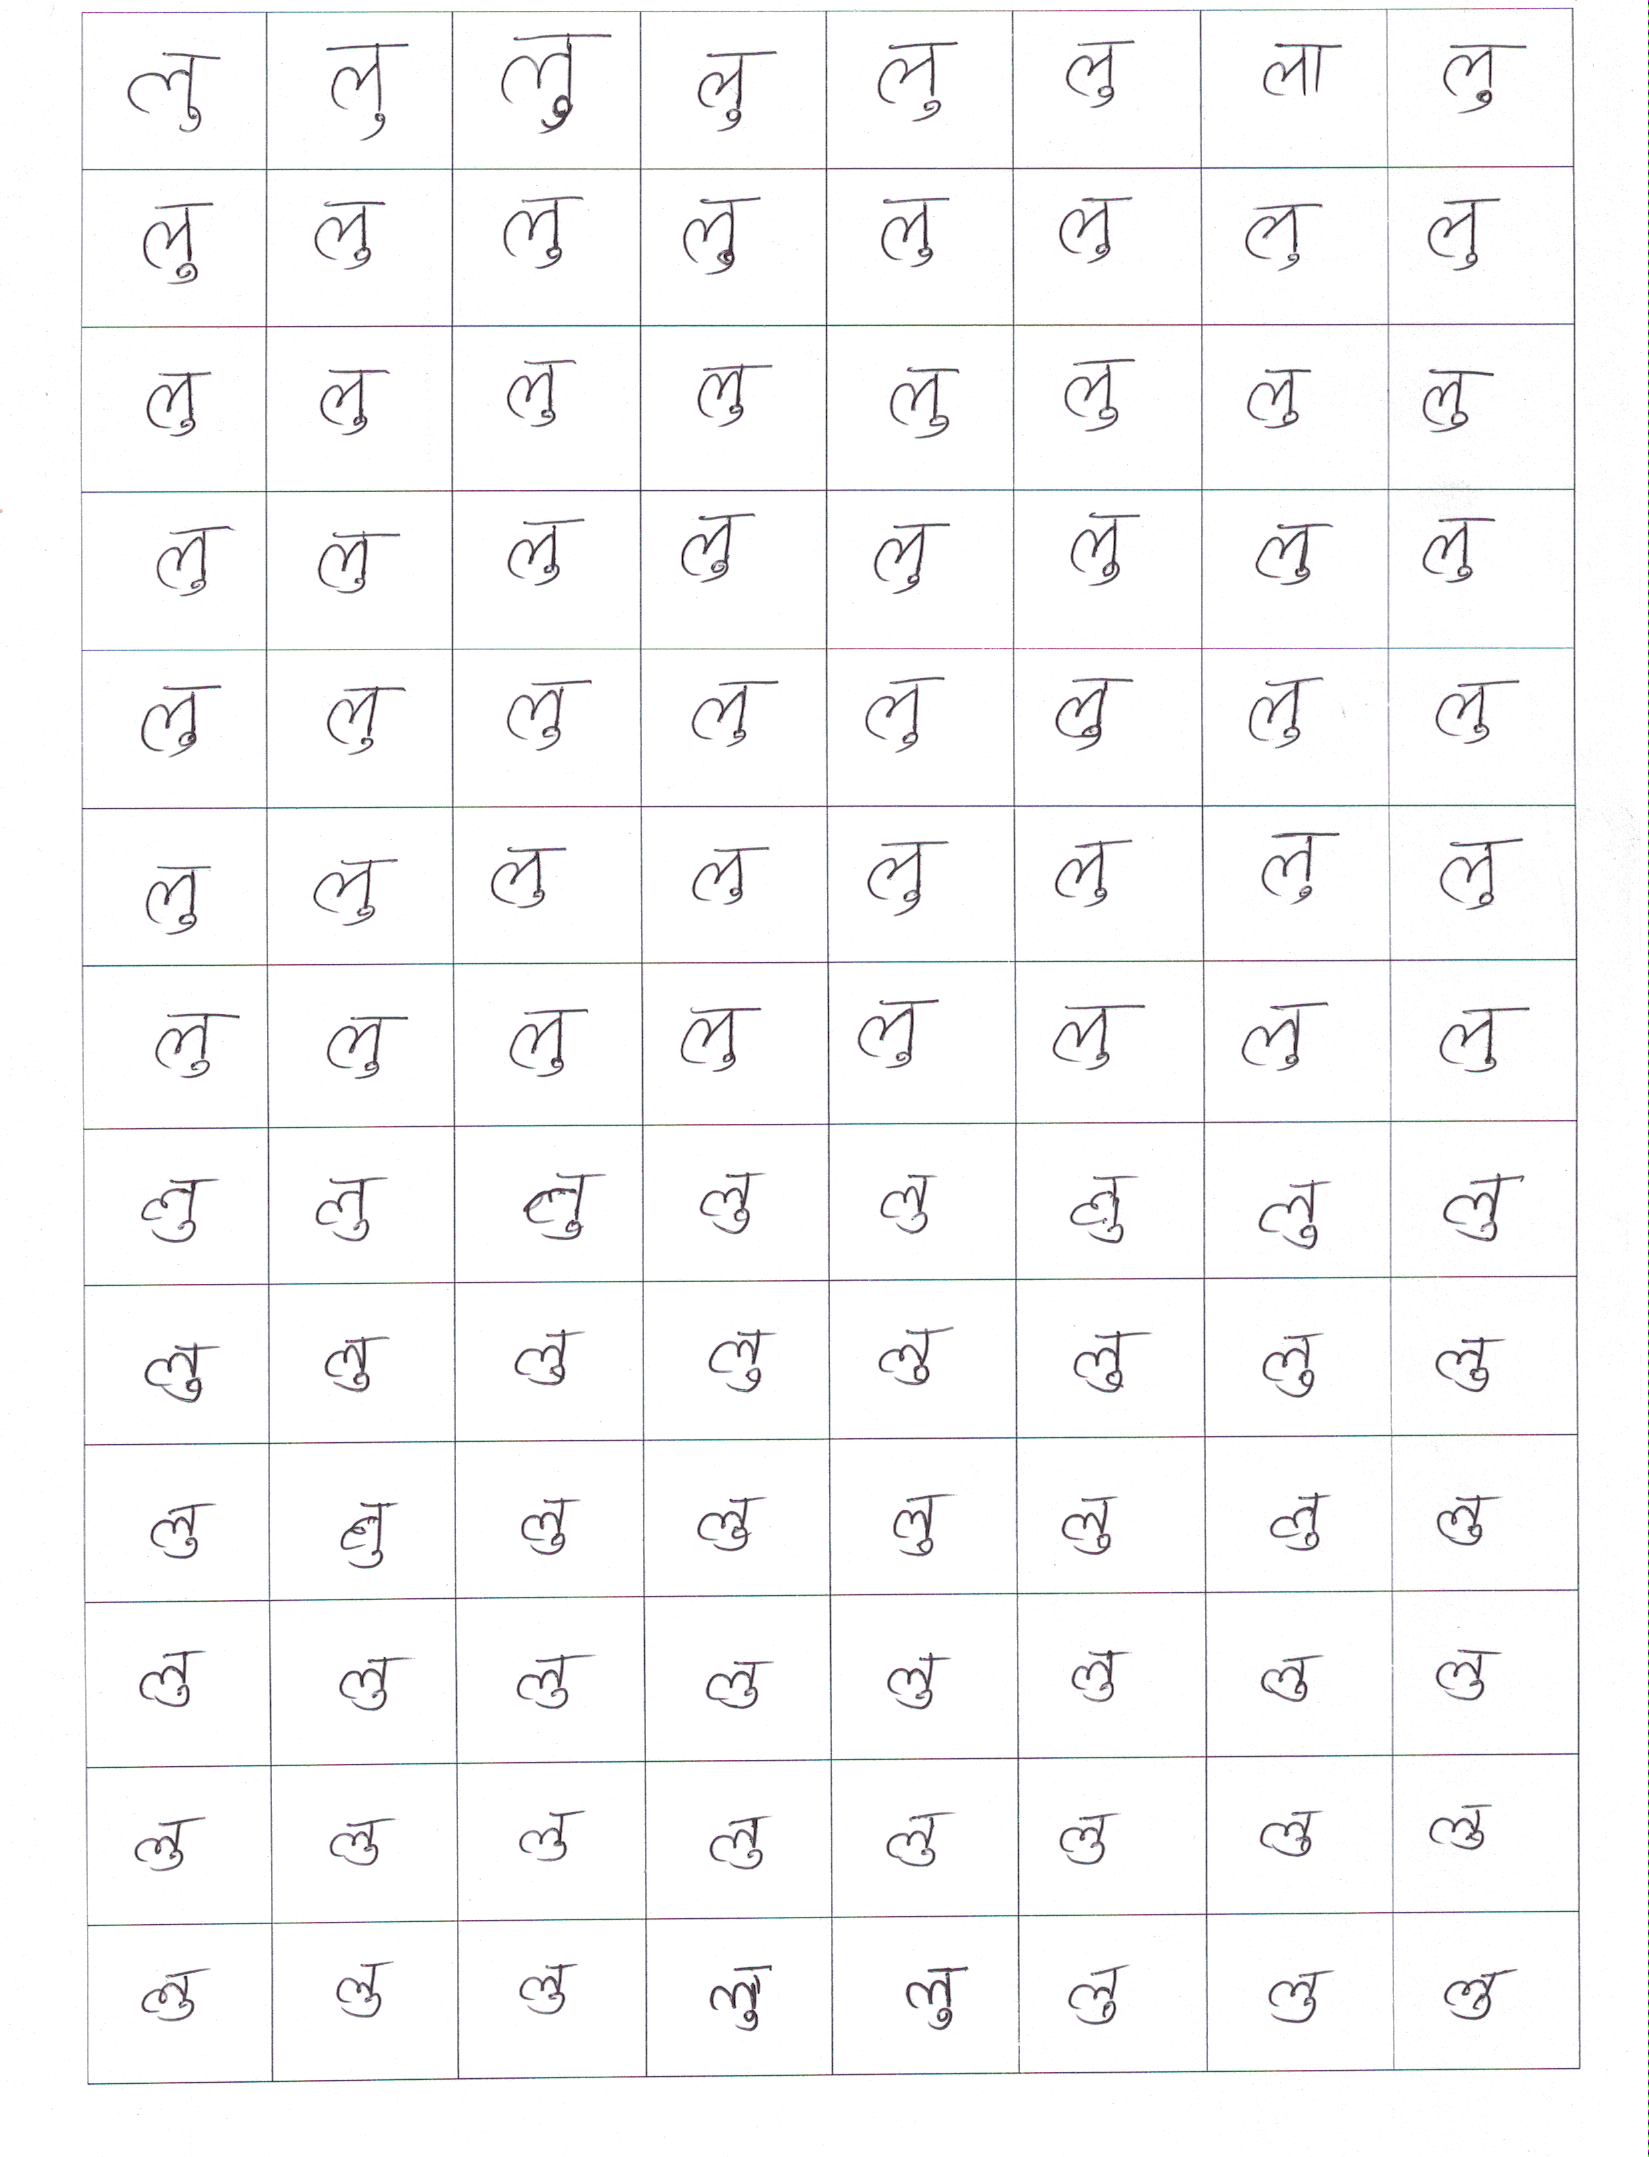 लु लु लु लु लु लु ला लु
लु लु लु लु लु लु लु लु
लु लु लु लु लु लु लु लु
लु लु लु लु लु लु लु लु
लु लु लु लु लु लु लु लु
लु लु लु लु लु लु लु लु
लु लु लु लु लु लु लु लु
लु लु लु लु लु लु लु लु
लु लु लु लु लु लु लु लु
लु लु लु लु लु लु लु लु
लु लु लु लु लु लु लु लु
लु लु लु लु लु लु लु लु
लु लु लु लु लु लु लु लु